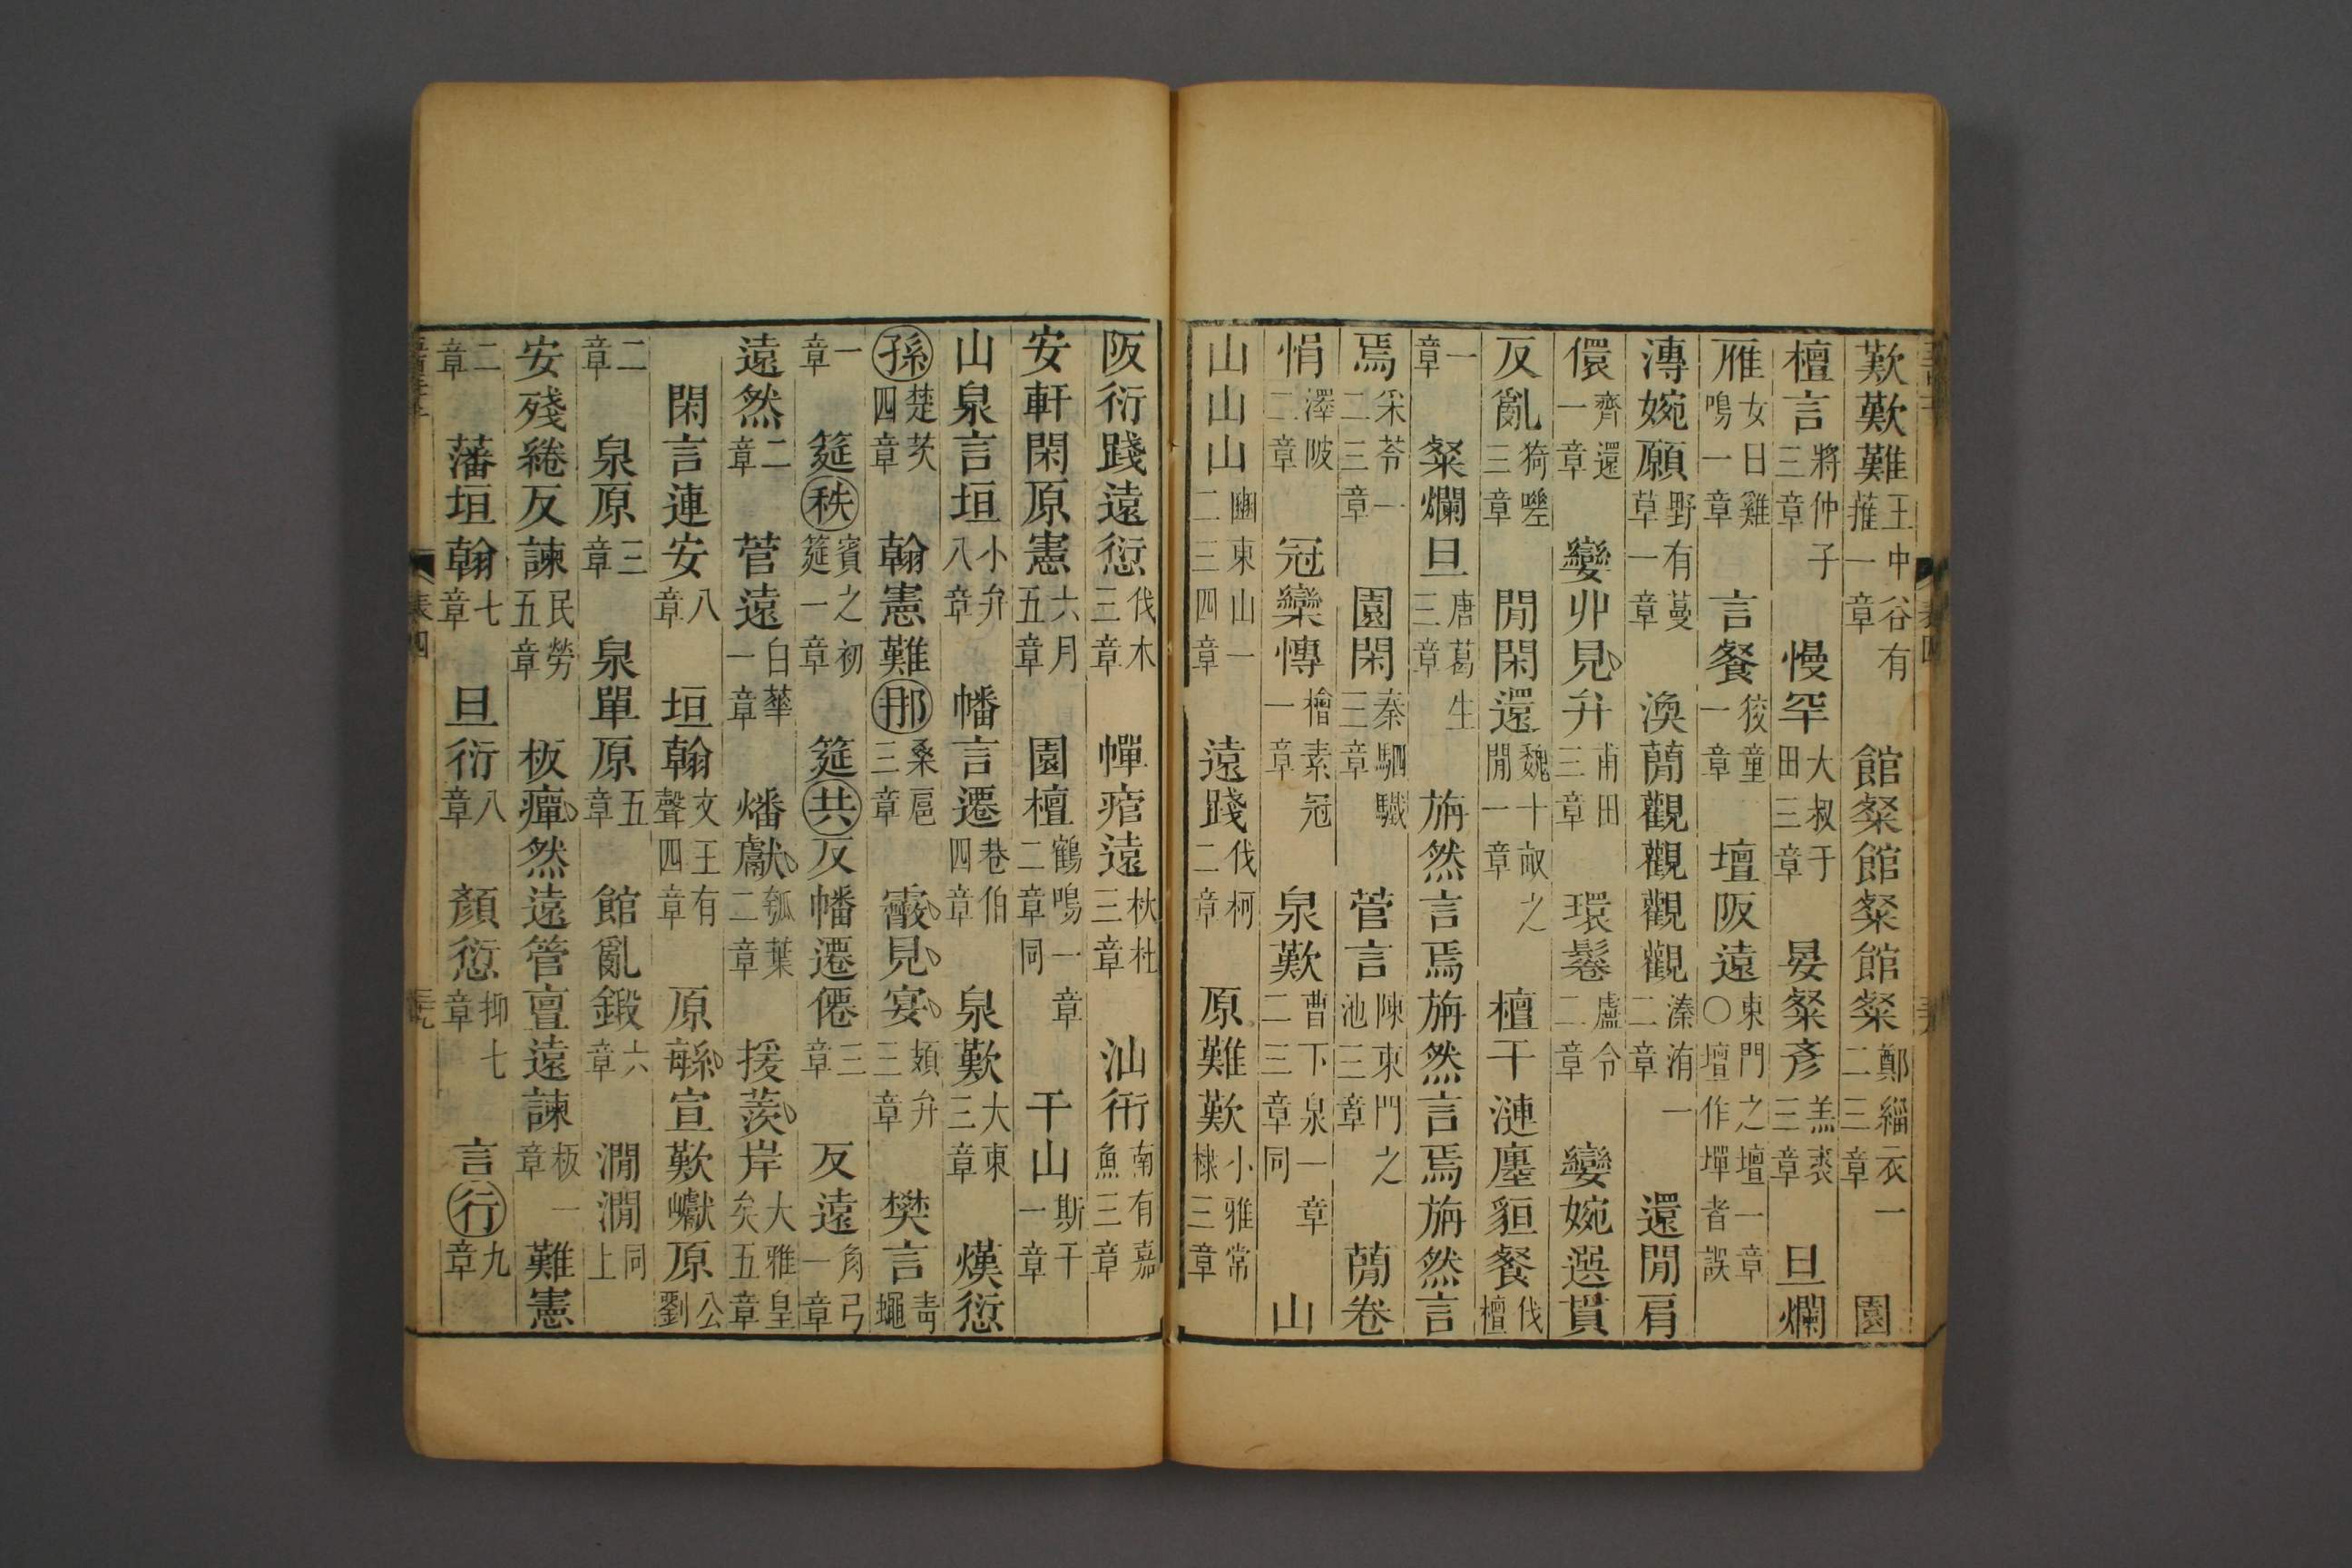 歎歎難王中谷有蓷一章　館粲館粲館粲鄭緇衣一二三章　園
檀言將仲子三章　慢罕大叔于田三章　晏粲彥羔裘三章　旦爛
雁女曰雞鳴一章　言餐狡童一章　壇阪遠東門之壇一章○壇作墠者誤
漙婉願野有蔓草一章　渙蕑觀觀觀觀溱洧一二章　還閒肩
儇齊還一章　孌丱見弁甫田三章　環鬈盧令二章　孌婉選貫
反亂猗嗟三章　閒閑還魏十畝之閒一章　檀干漣廛貆餐伐檀
一章　粲爛旦唐葛生三章　旃然言焉旃然言焉旃然言
焉采苓一二三章　園閑秦駟驖三章　菅言陳東門之池三章　蕑卷
悁澤陂二章　冠欒慱檜素冠一章　泉歎曹下泉一章二三章同　山
山山山豳東山一二三四章　遠踐伐柯二章　原難歎小雅常棣三章
阪衍踐遠愆伐木三章　幝痯遠杕杜三章　汕衎南有嘉魚三章
安軒閑原憲六月五章　園檀鶴鳴一章二章同　干山斯干一章
山泉言垣小弁八章　幡言遷巷伯四章　泉歎大東三章　熯愆
孫楚茨四章　翰憲難那桑扈三章　霰見宴頍弁三章　樊言青蠅
一章　筵秩賓之初筵一章　筵共反幡遷僊三章　反遠角弓一章
遠然二章　菅遠白華一章　燔獻瓠葉二章　援羨岸大雅皇矣五章
閑言連安八章　垣翰文王有聲四章　原緐宣歎巘原公劉
二章　泉原三章　泉單原五章　館亂鍛六章　澗澗同上
安殘綣反諫民勞五章　板癉然遠管亶遠諫板一章　難憲
二章　藩垣翰七章　旦衍八章　顏愆抑七章　言行九章
表四